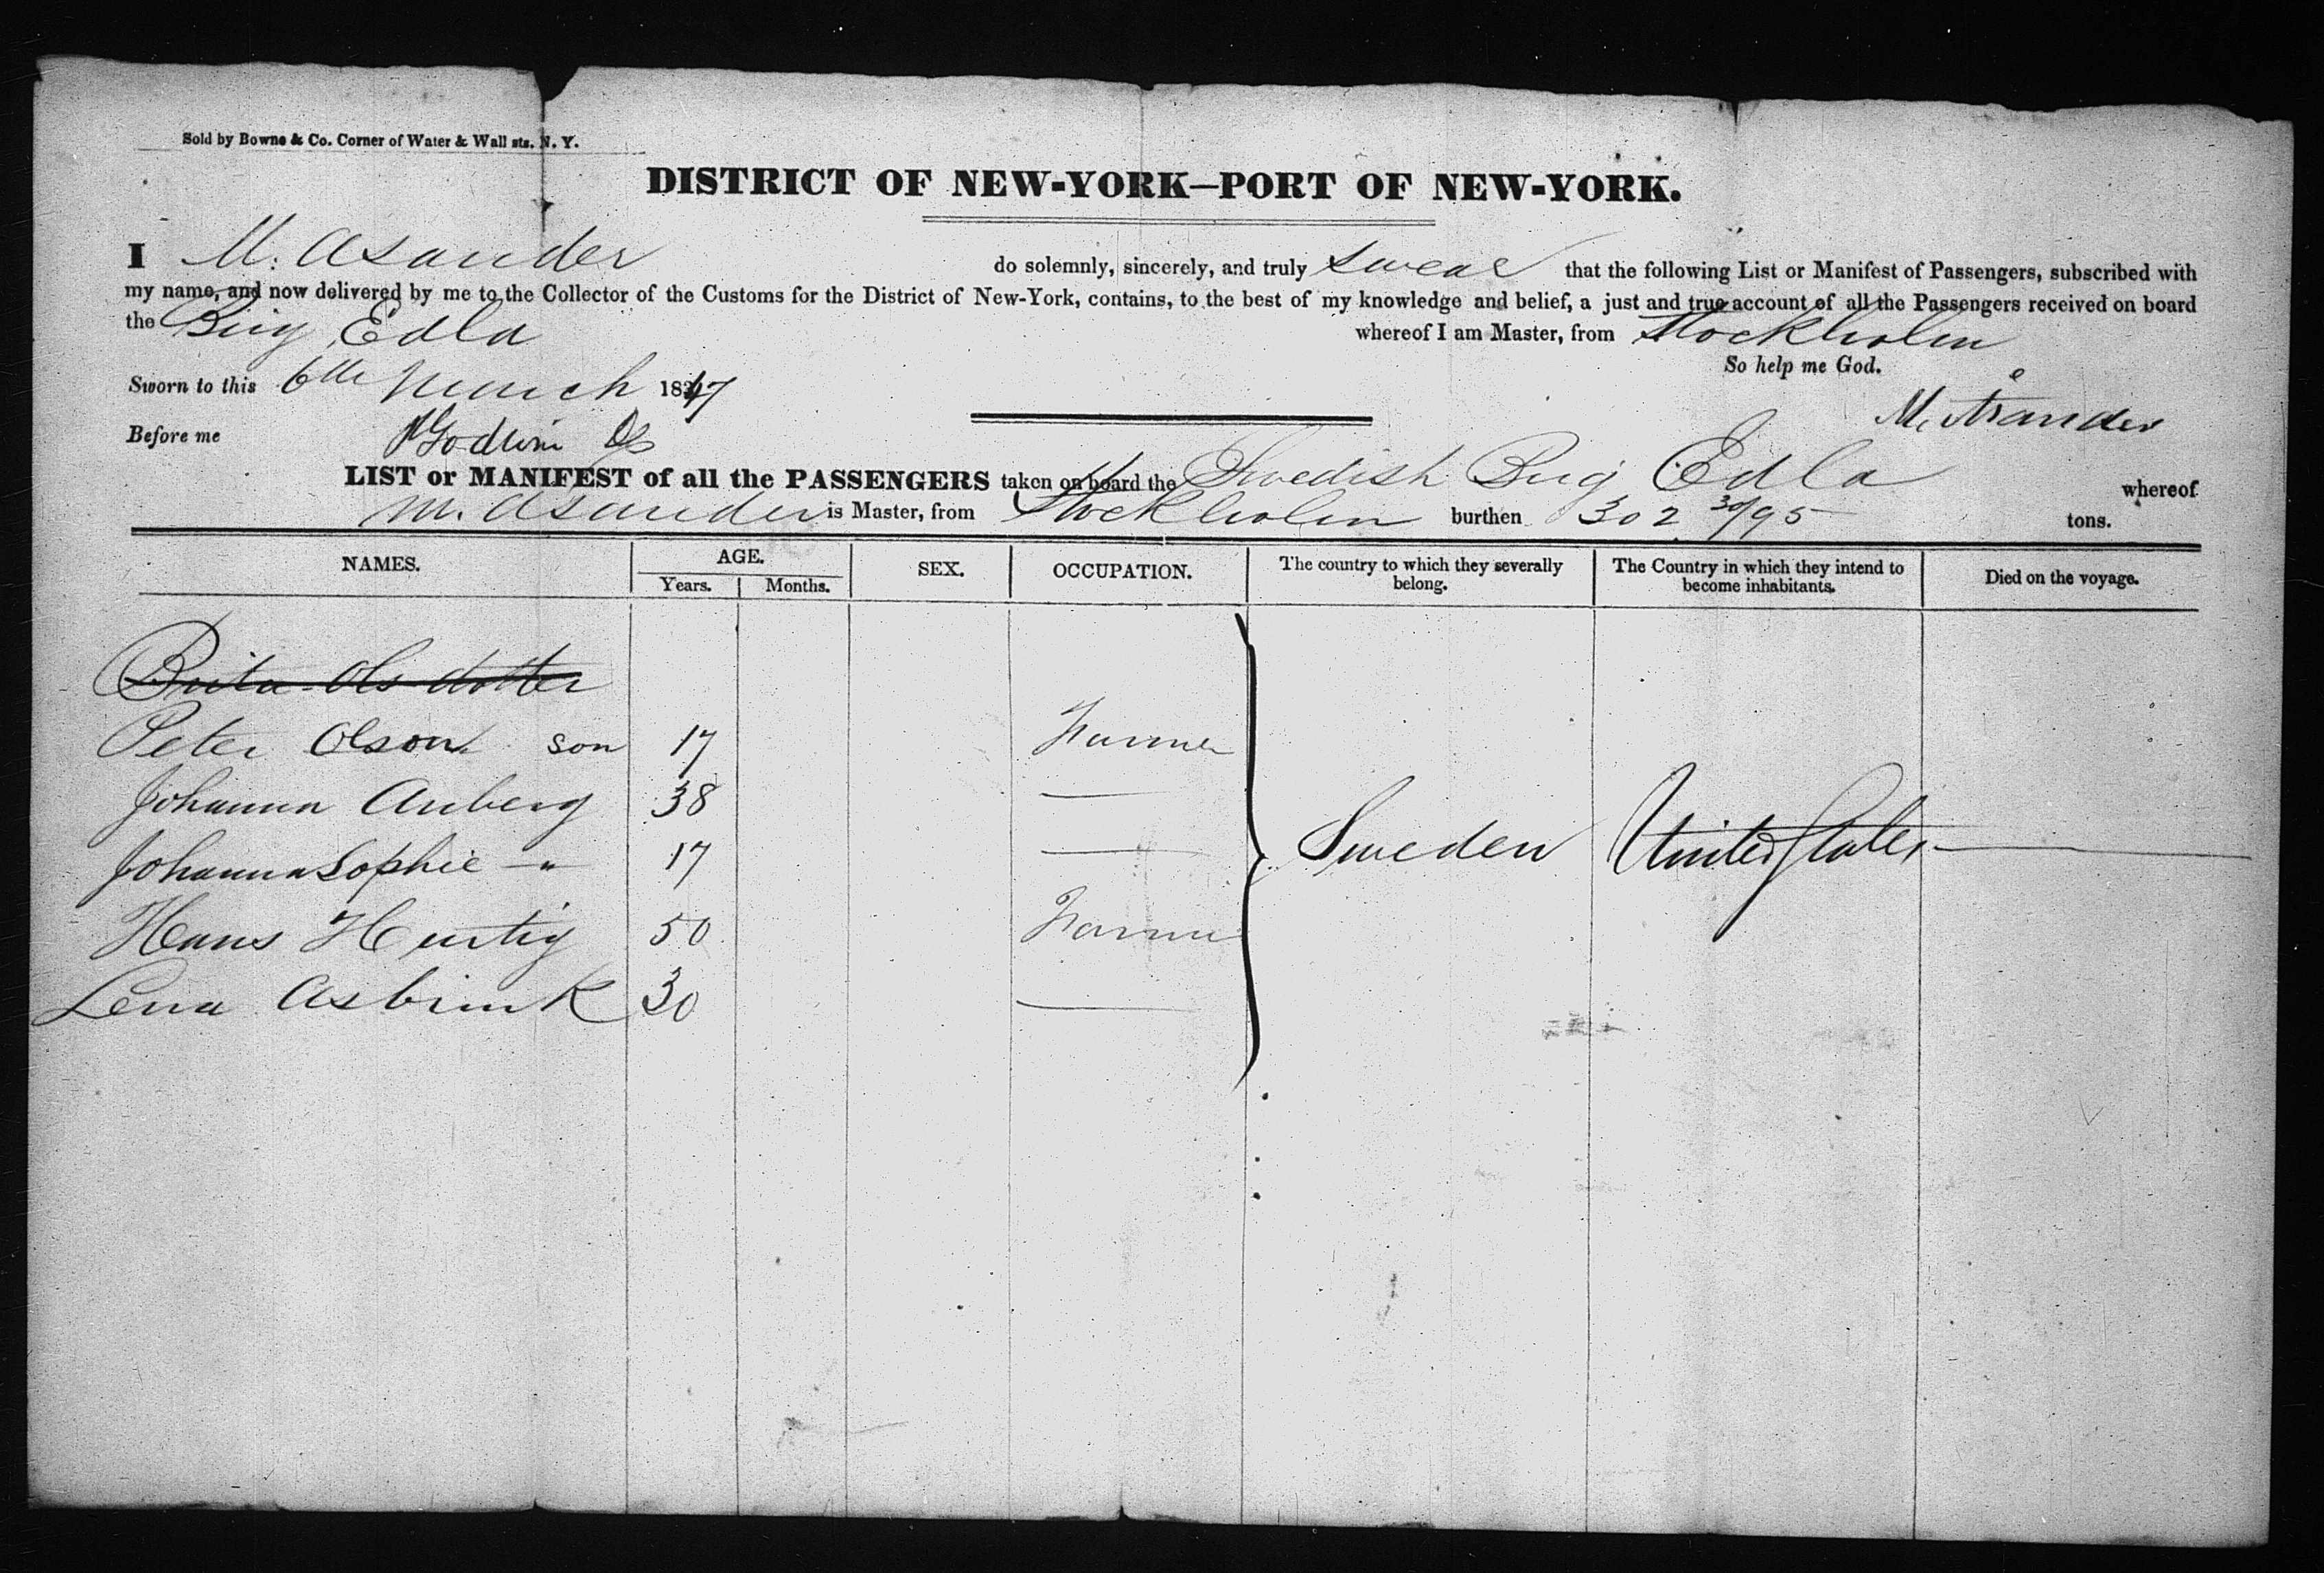 Sold by Bowne & Co. Corner of Water & Wall sts. N. Y.
DISTRICT OF NEW-YORK—PORT OF NEW-YORK.
I M. Asander do solemnly, sincerely, and truly swear that the following List or Manifest of Passengers, subscribed with
my name, and now delivered by me to the Collector of the Customs for the District of New-York, contains, to the best of my knowledge and belief, a just and true account of all the Passengers received on board
the Brig Edla whereof I am Master, from Stockholm
So help me God.
Sworn to this 6th March 1847
M. Åsander
Before me
LIST or MANIFEST of all the PASSENGERS taken on board the Swedish Brig Edla whereof
M. Asander is Master, from Stockholm burthen 302 30/95 tons.
NAMES. AGE. SEX. OCCUPATION. The country to which they severally belong. The Country in which they intend to become inhabitants. Died on the voyage.
Years. Months.
Brita Ols dotter
Peter Olson son 17 Farmer
Johanna Anberg 38 —
Johanna Sophie — " 17 —
Sweden United States —
Hans Hurtig 50 Farmer
Lena Asbrink 30 —